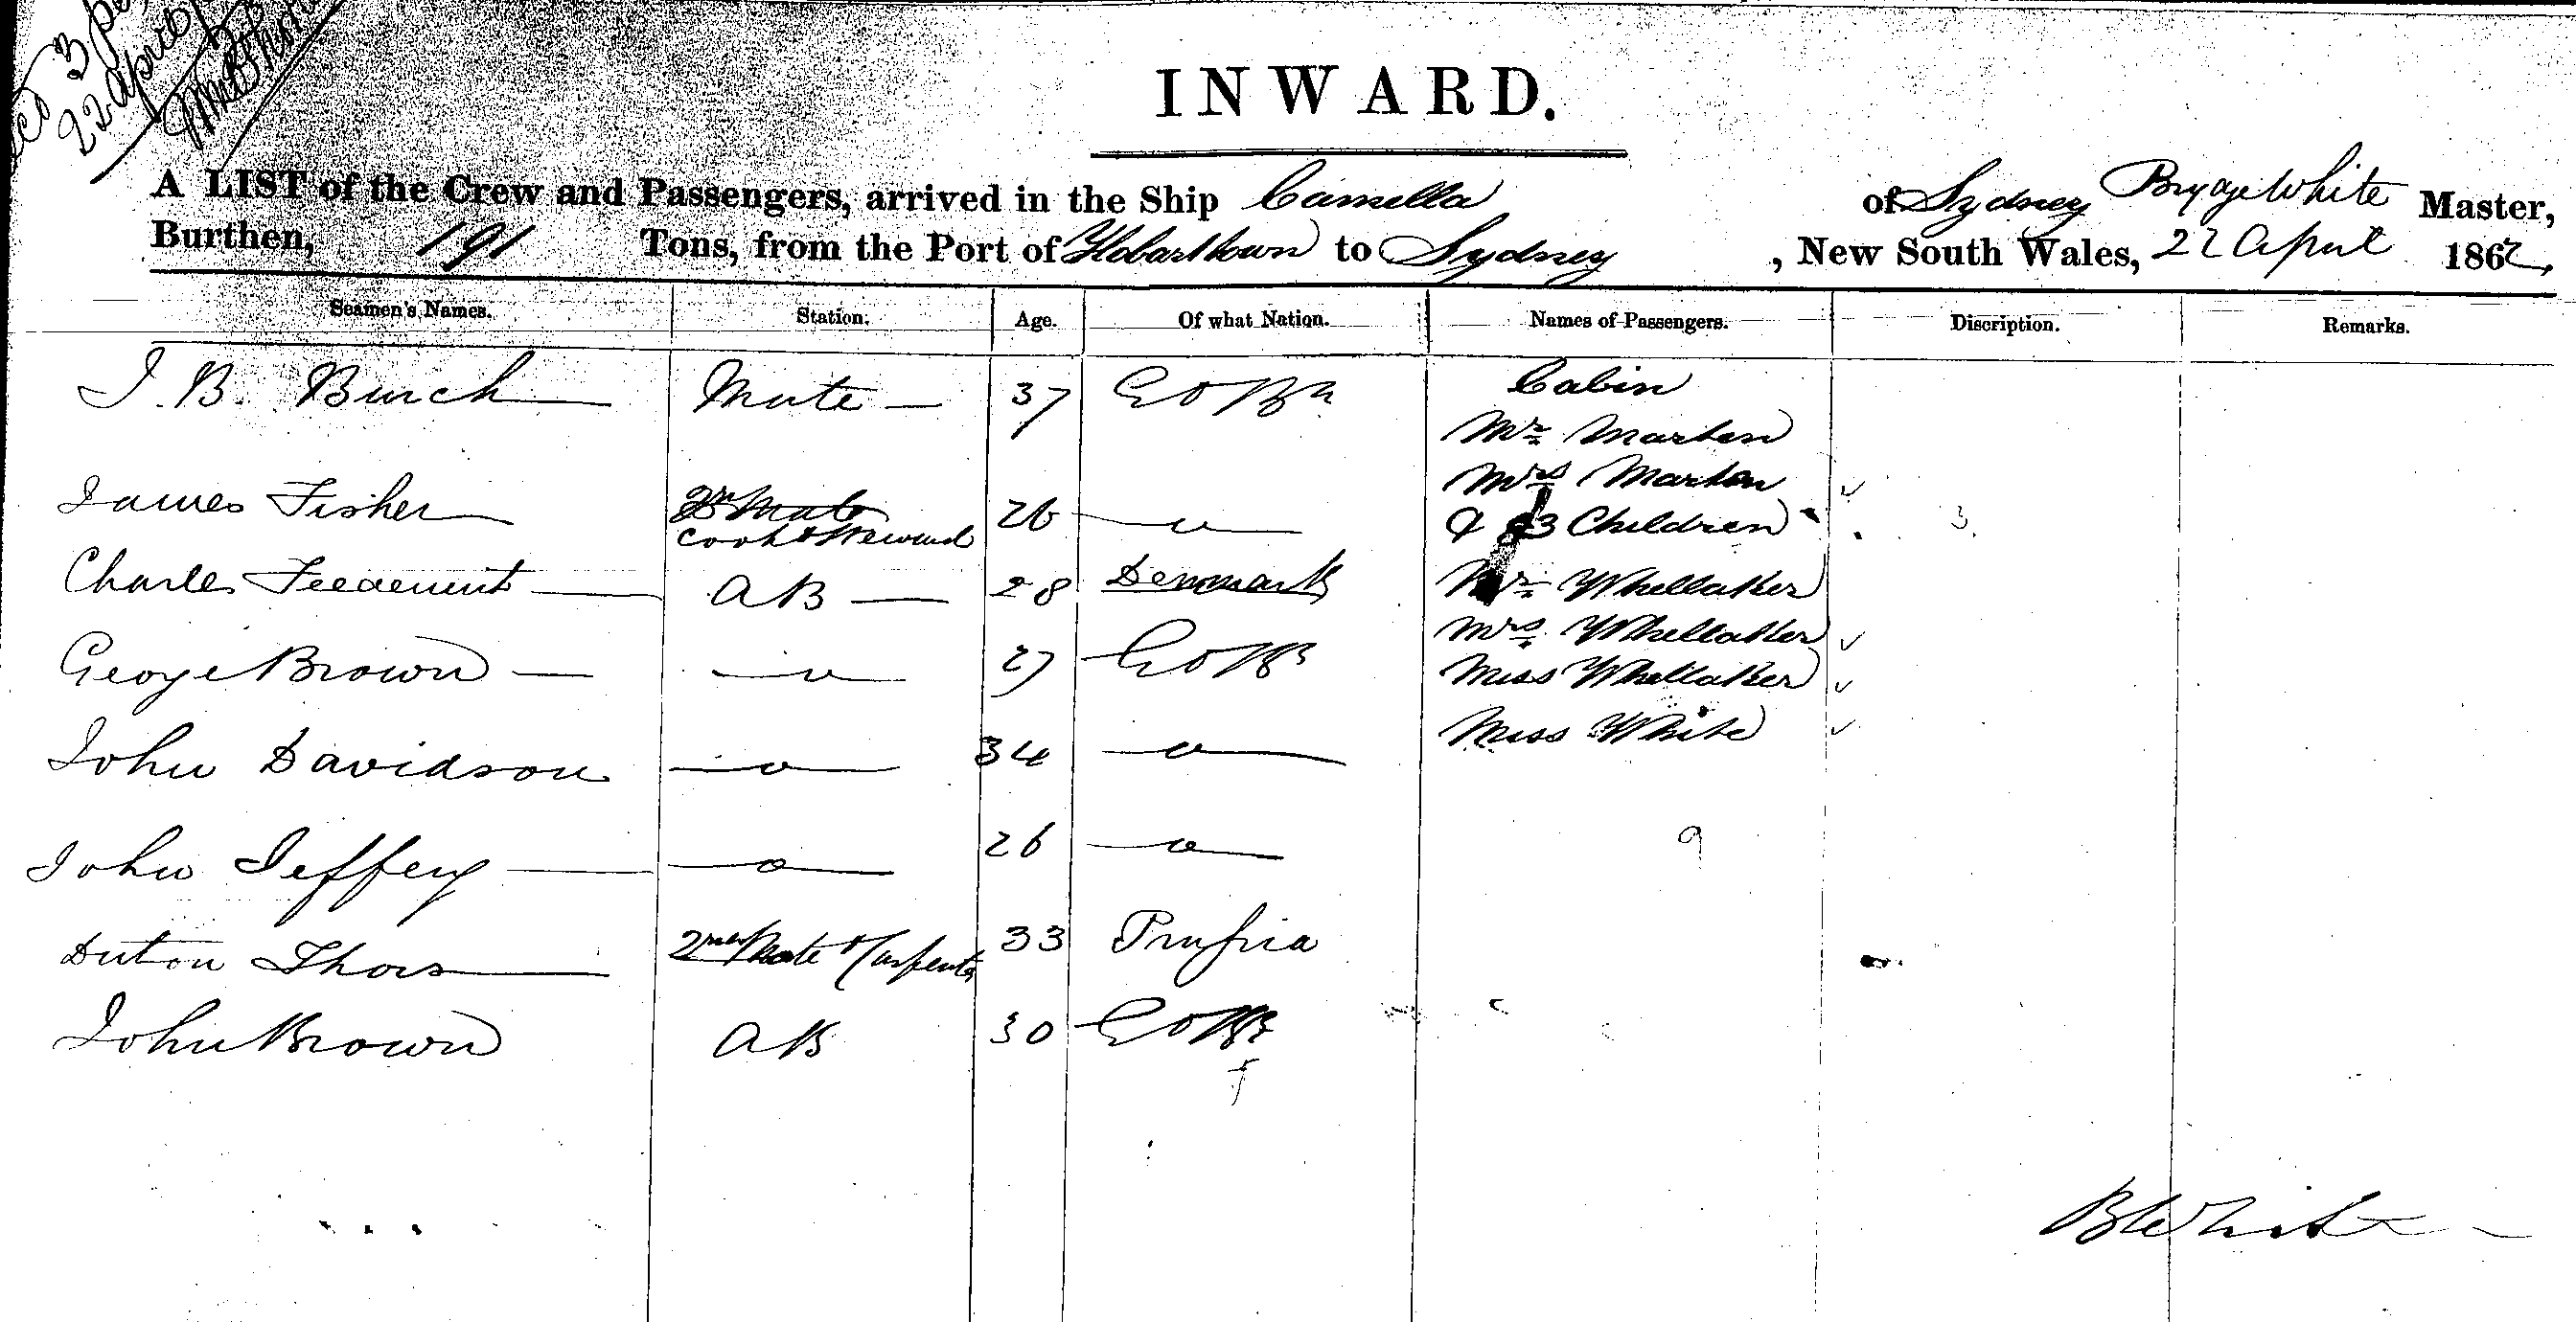 3
22 April
INWARD.
A LIST of the Crew and Passengers, arrived in the Ship Camilla of Sydney White Master,
Burthen, 191 Tons, from the Port of Hobarttown to Sydney, New South Wales, 22 April 1862,
Seamen's Names. Station. Age. Of what Nation. Names of Passengers. Discription. Remarks.
Cabin
J. B. Burch Mate 37
Mr Marten
Mrs Marten
James Fisher 2nd Mate 26 — " —
Cook & Steward
& 3 Children 3
Charles AB 28 Denmark Mr Whellaker
Mrs Whellaker
George Brown — " — 27 Miss Whellaker
Miss White
John Davidson — " — 34 — " —
John Jeffery — " — 26 — " — 9
Thors 2nd Mate & Carpenter 33 Prussia
John Brown AB 30
B White